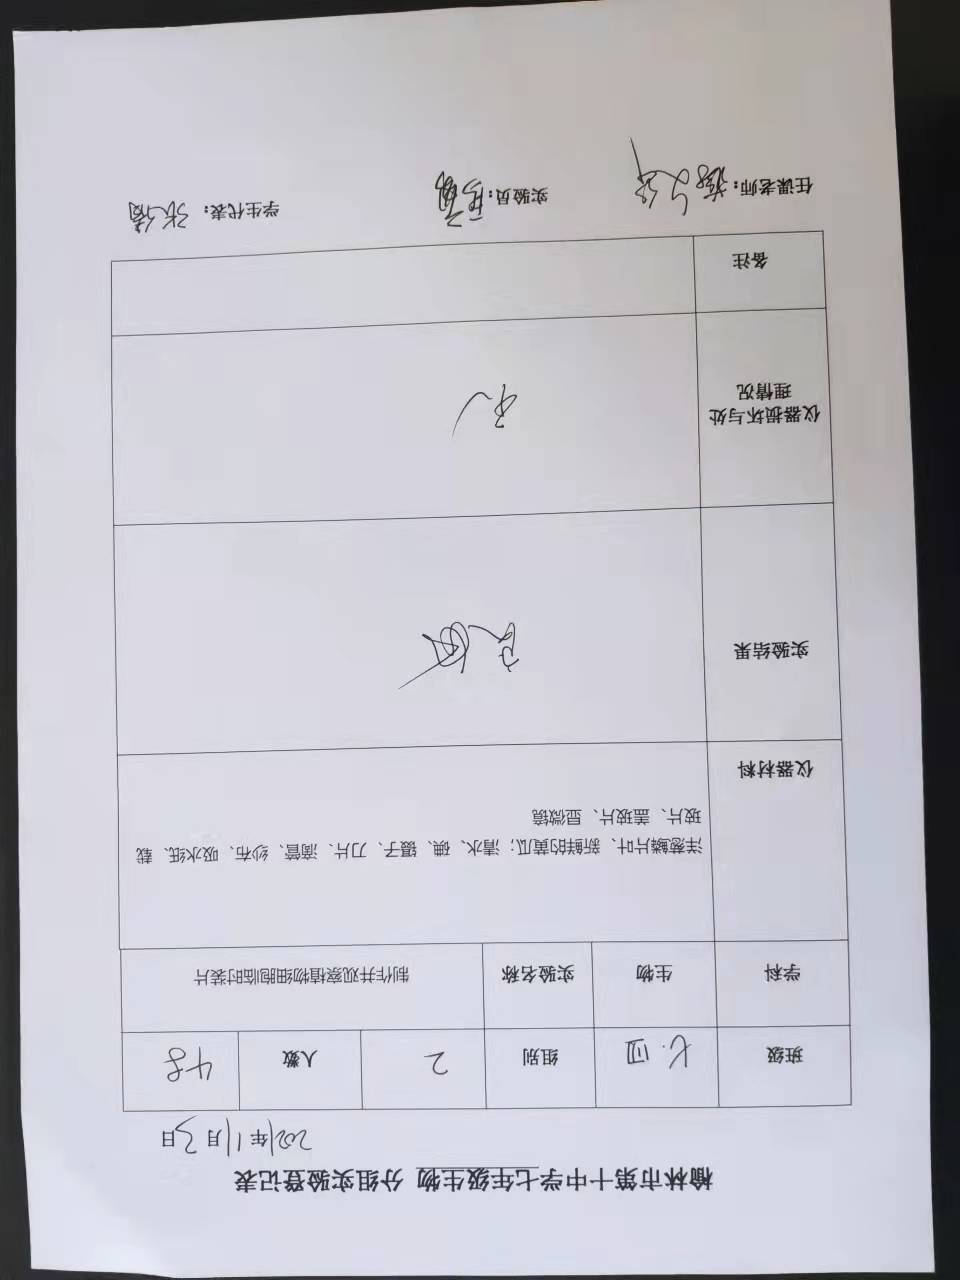 榆林市第十中学七年级生物 分组实验登记表
2021年11月3日
班级 七.四 组别 2 人数 48
学科 生物 实验名称 制作并观察植物细胞临时装片
仪器材料
洋葱鳞片叶、新鲜的黄瓜；清水、碘、镊子、刀片、滴管、纱布、吸水纸、载
玻片、盖玻片、显微镜
实验结果
仪器损坏与处
理情况
备注
任课老师： 实验员： 学生代表：张